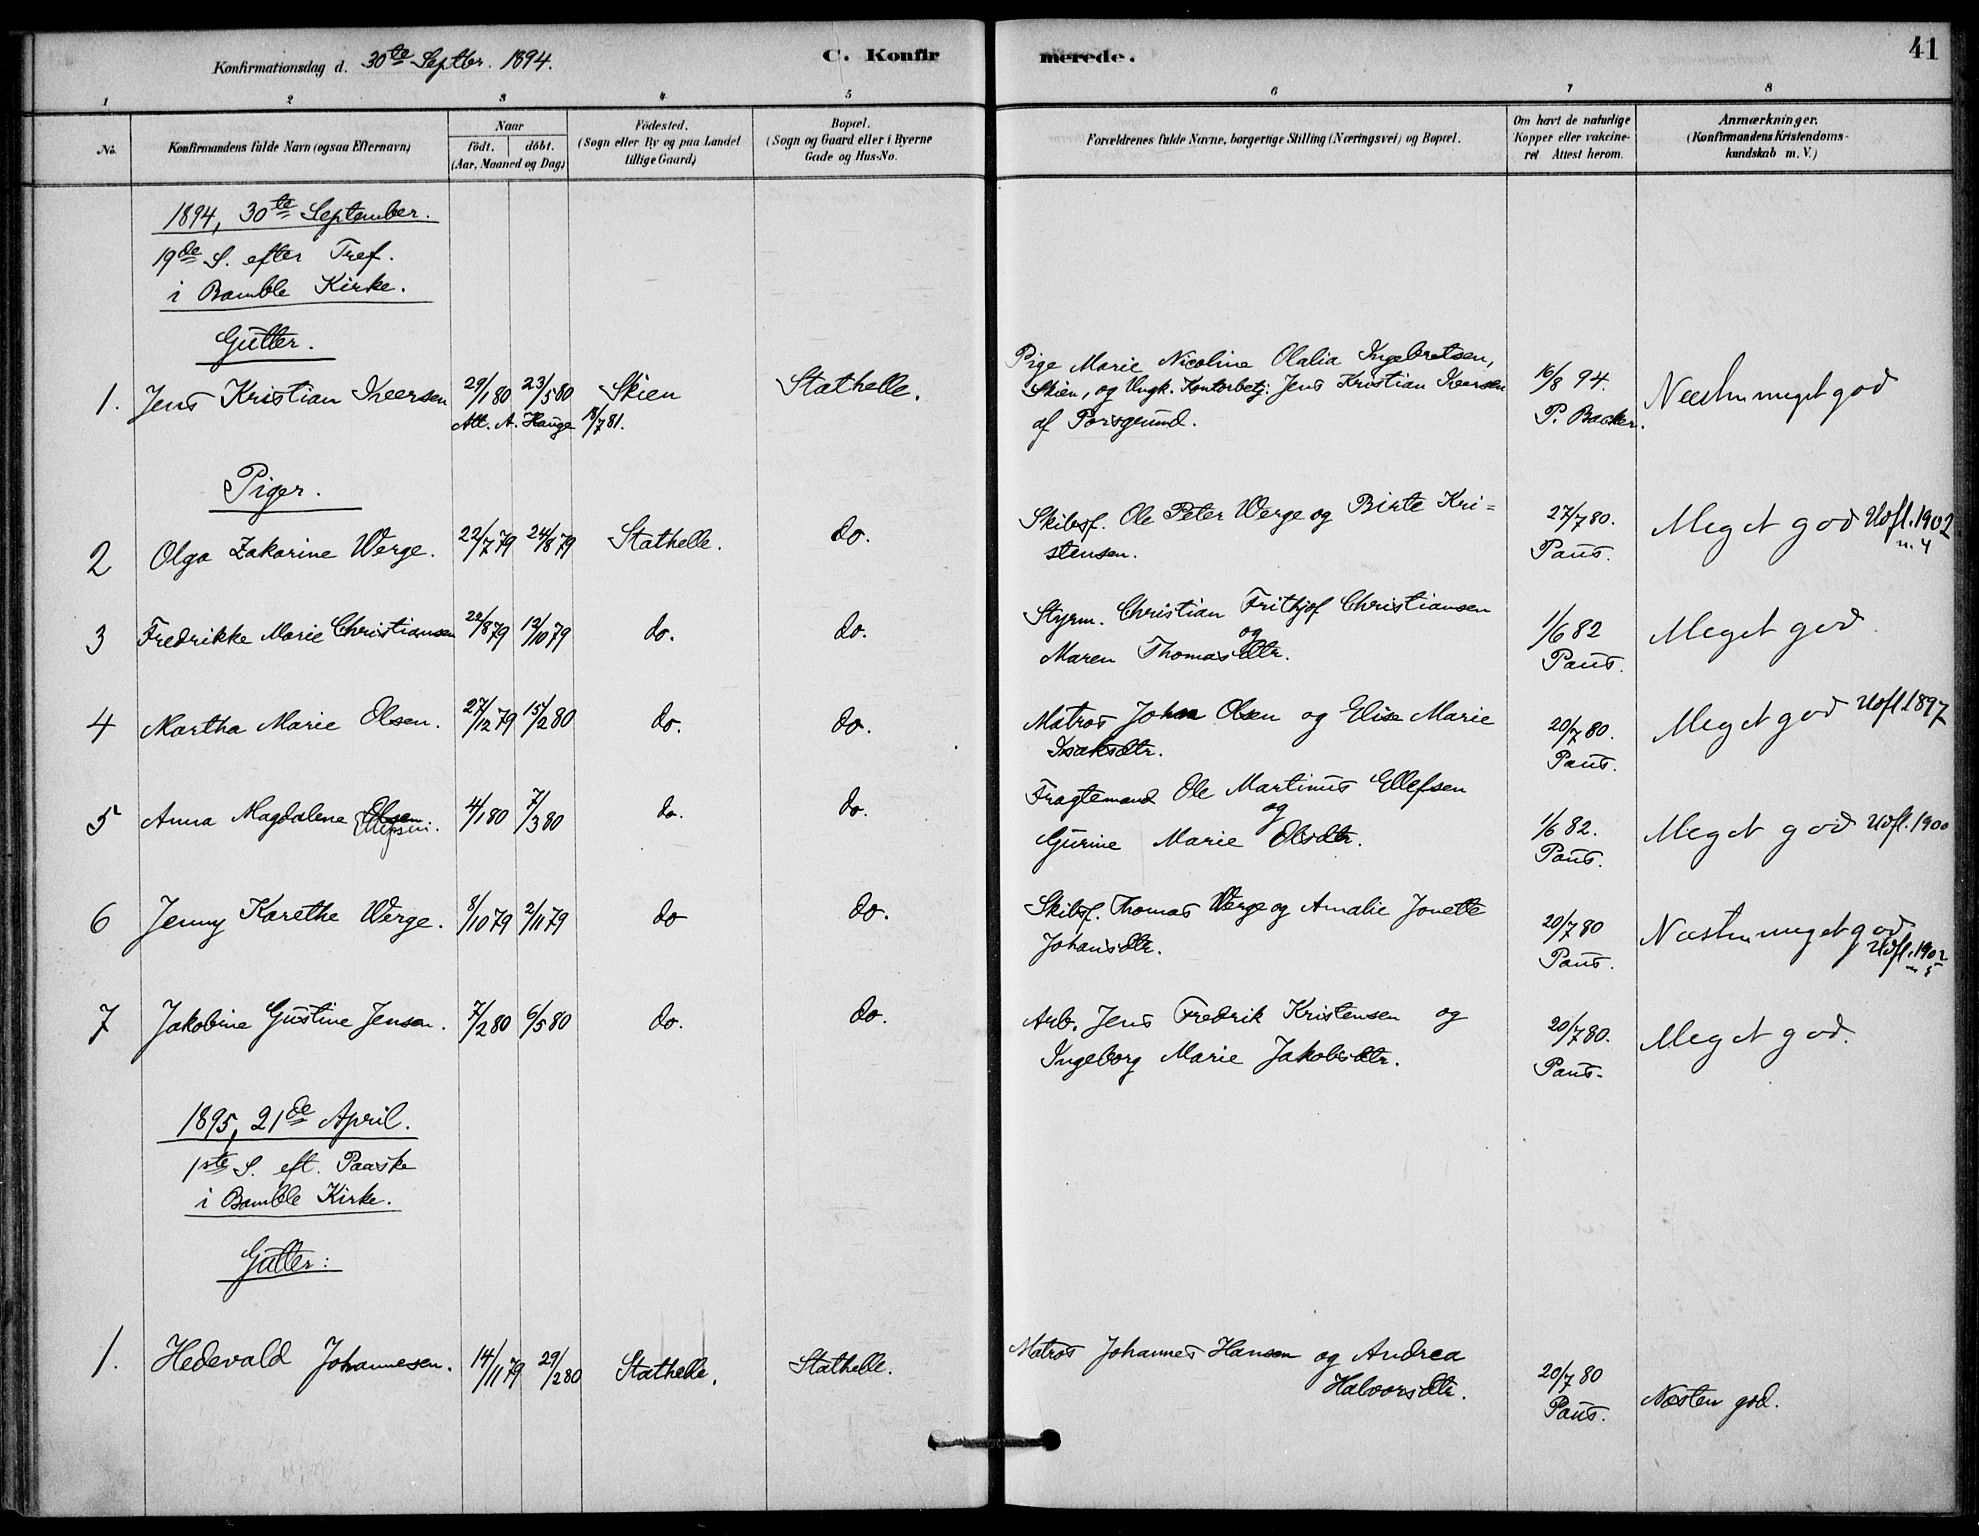 Konfirmationsdag d. 30te Septbr. 1894.
C. Konfir merede. 41
1 2 3 4 5 6 7 8
No.
Konfirmandens fulde Navn (ogsaa Efternavn)
Naar
födt. döbt.
(Aar, Maaned og Dag)
Födested.
(Sogn eller By og paa Landet
tillige Gaard)
Bopæl.
(Sogn og Gaard eller i Byerne
Gade og Hus-No.
Forældrenes fulde Navne, borgerlige Stilling (Næringsvei) og Bopæl.
Om havt de naturlige
Kopper eller vakcine-
ret Attest herom.
Anmærkninger.
(Konfirmandens Kristendoms-
kundskab m. V.)
1894, 30te September.
19de S. efter Tref.
i Bamble Kirke.
Gutter.
1. Jens Kristian Iversen 29/1 80 23/5 80 Skien Stathelle.
Att. A. Hauge 18/7 81.
Pige Marie Nicoline Olalia Ingebretsen,
Skien, og Ungk. Kontorbetj. Jens Kristian Iversen
af Porsgrund.
16/8 94.
P. Backer.
Næsten meget god
Piger.
2 Olga Zakarine Werge. 22/7 79 24/8 79 Stathelle. do.
Skibsf. Ole Peter Werge og Birte Kri-
stensen.
27/7 80.
Paus.
Meget god Udfl. 1902
n. 4
3 Fredrikke Marie Christiansen 22/8 79 12/10 79 do. do.
Styrm. Christian Frithjof Christiansen
og
Maren Thomasdtr.
1/6 82
Paus.
Meget god.
4 Martha Marie Olsen. 27/12 79 15/2 80 do. do.
Matros Johan Olsen og Elise Marie
Isaksdtr.
20/7 80.
Paus.
Meget god Udfl. 1897
5 Anna Magdalene Olsen 4/1 80 7/3 80 do. do.
Ellefsen.
Fragtemand Ole Martinus Ellefsen
og
Gurine Marie Olsdtr.
1/6 82.
Paus.
Meget god Udfl. 1900
6 Jenny Karethe Werge. 8/10 79 2/11 79 do do.
Skibsf. Thomas Werge og Amalie Jonette
Johansdtr.
20/7 80
Paus.
Næsten meget god
Udfl. 1902
n 5
7 Jakobine Gustine Jensen. 7/2 80 6/5 80 do. do.
Arb. Jens Fredrik Kristensen og
Ingeborg Marie Jakobsdtr.
20/7 80.
Paus.
Meget god.
1895, 21de April.
1ste S. eft. Paaske
i Bamble Kirke.
Gutter:
1. Hedevald Johannesen. 14/11 79 29/2 80 Stathelle. Stathelle.
Matros Johannes Hansen og Andrea
Halvorsdtr.
20/7 80
Paus.
Næsten god.